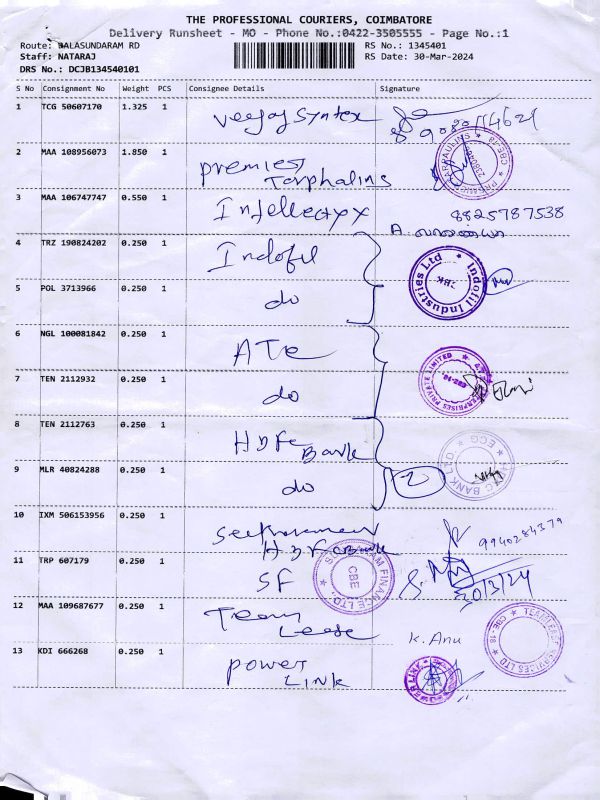 THE PROFESSIONAL COURIERS, COIMBATORE
Delivery Runsheet - MO - Phone No.:0422-3505555 - Page No.:1
Route: BALASUNDARAM RD RS No.: 1345401
Staff: NATARAJ RS Date: 30-Mar-2024
DRS No.: DCJB134540101
S No Consignment No Weight PCS Consignee Details Signature
1 TCG 50607170 1.325 1 Veejay Syntex
2 MAA 108956073 1.850 1 Premier Tarphalins
3 MAA 106747747 0.550 1 Intellectyx 8825787538
4 TRZ 190824202 0.250 1 Indofil Indofil Industries Ltd
5 POL 3713966 0.250 1 do
6 NGL 100081842 0.250 1 ATe
7 TEN 2112932 0.250 1 do PRIVATE LIMITED
8 TEN 2112763 0.250 1 HDFC Bank
9 MLR 40824288 0.250 1 do 2
10 IXM 506153956 0.250 1 HDFC Bank 9940284379
11 TRP 607179 0.250 1 SF FINANCE LTD. CBE 30/3/24
12 MAA 109687677 0.250 1 Team Lease K. Anu
13 KDI 666268 0.250 1 Power Link